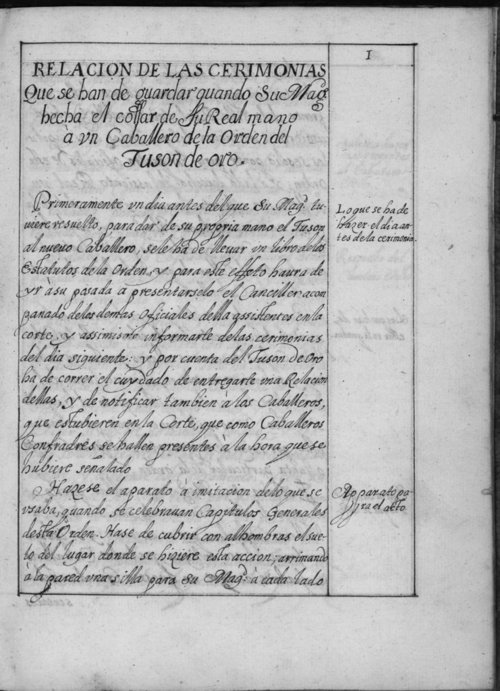 1
RELACION DE LAS CERIMONIAS
Que se han de guardar quando Su Magᵈ
hecha el collar de su Real mano
à vn Caballero de la Orden del
Tuson de oro.
Primeramente vn dia antes del que Su Magᵈ tu-
viere resuelto, para dar de su propria mano el Tuson
al nuevo Caballero, sele ha de llevar vn libro de los
estatutos de la Orden, y para este effeto haura de
yr à su posada à presentarselo el Canciller acom
panado de los demas oficiales della assistentes en la
corte, y assimismo informarle de las cerimonias
del dia siguiente: y por cuenta del Tuson de Oro
ha de correr el cuydado de entregarle vna Relacion
dellas, y de notificar tambien à los Caballeros,
que estubieren en la Corte, que como Caballeros
Confradres se hallen presentes à la hora que se
hubiere señalado
Hazese el aparato à imitacion de lo que se
vsaba, quando se celebravan Capitulos Generales
desta Orden. Hase de cubrir con alhombras el sue-
lo del lugar donde se hiziere esta accion; arrimando
à la pared vna silla para Su Magᵈ à cada lado
Lo que se ha de
hazer el dia an
tes de la cerimonia.
Apparato pa-
ra el acto